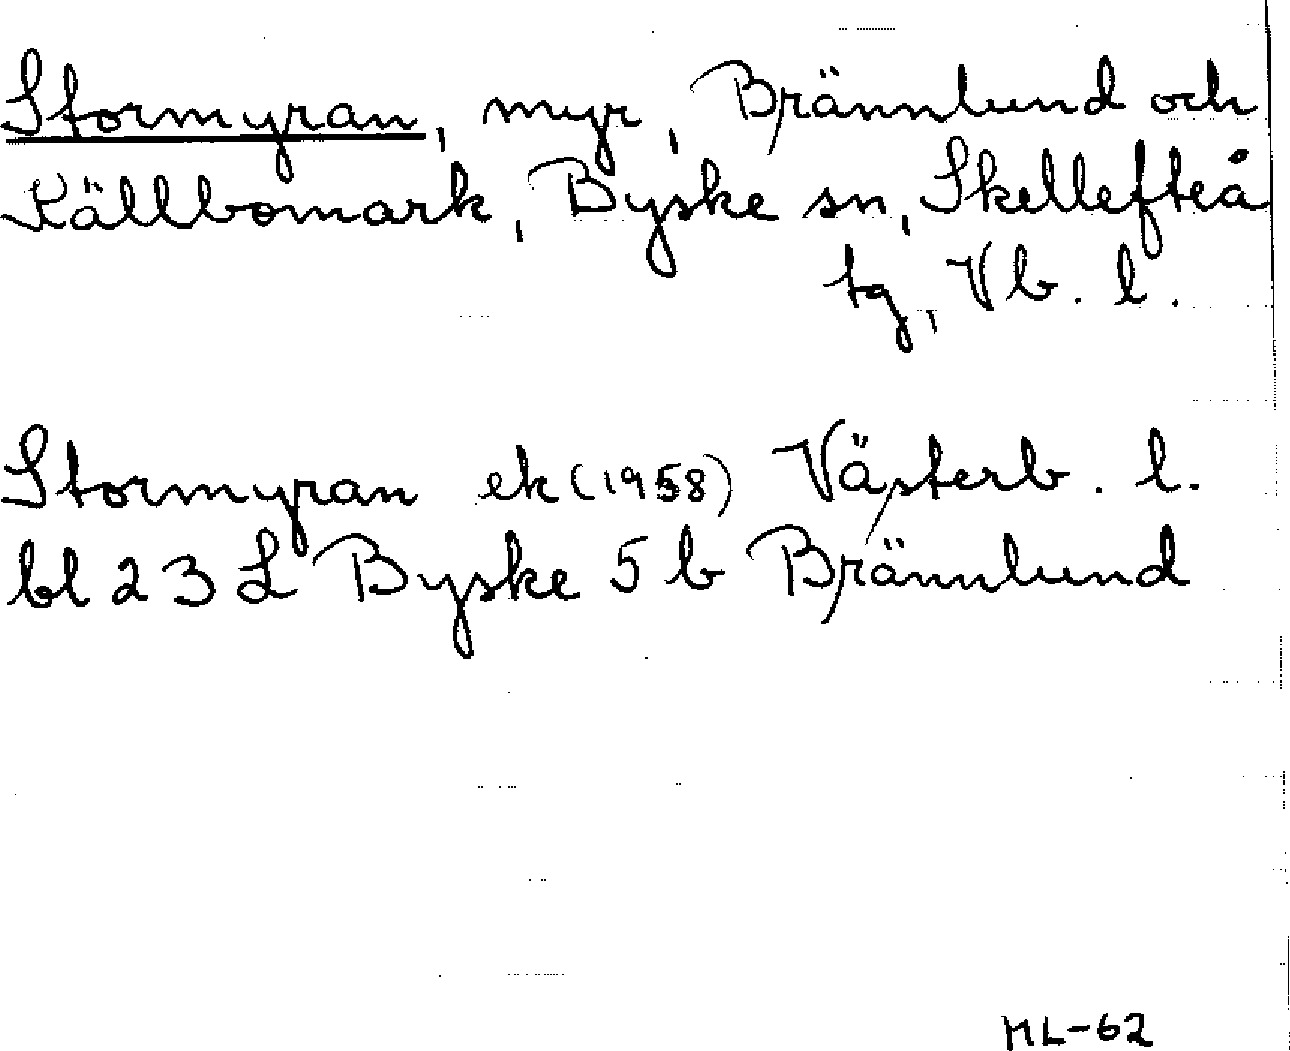 Stormyran, myr, Brännlund och
Källbomark, Byske sn, Skellefteå
tg, Vb. l.
Stormyran ek (1958) Västerb. l.
bl 23 L Byske 5 b Brännlund
ML-62